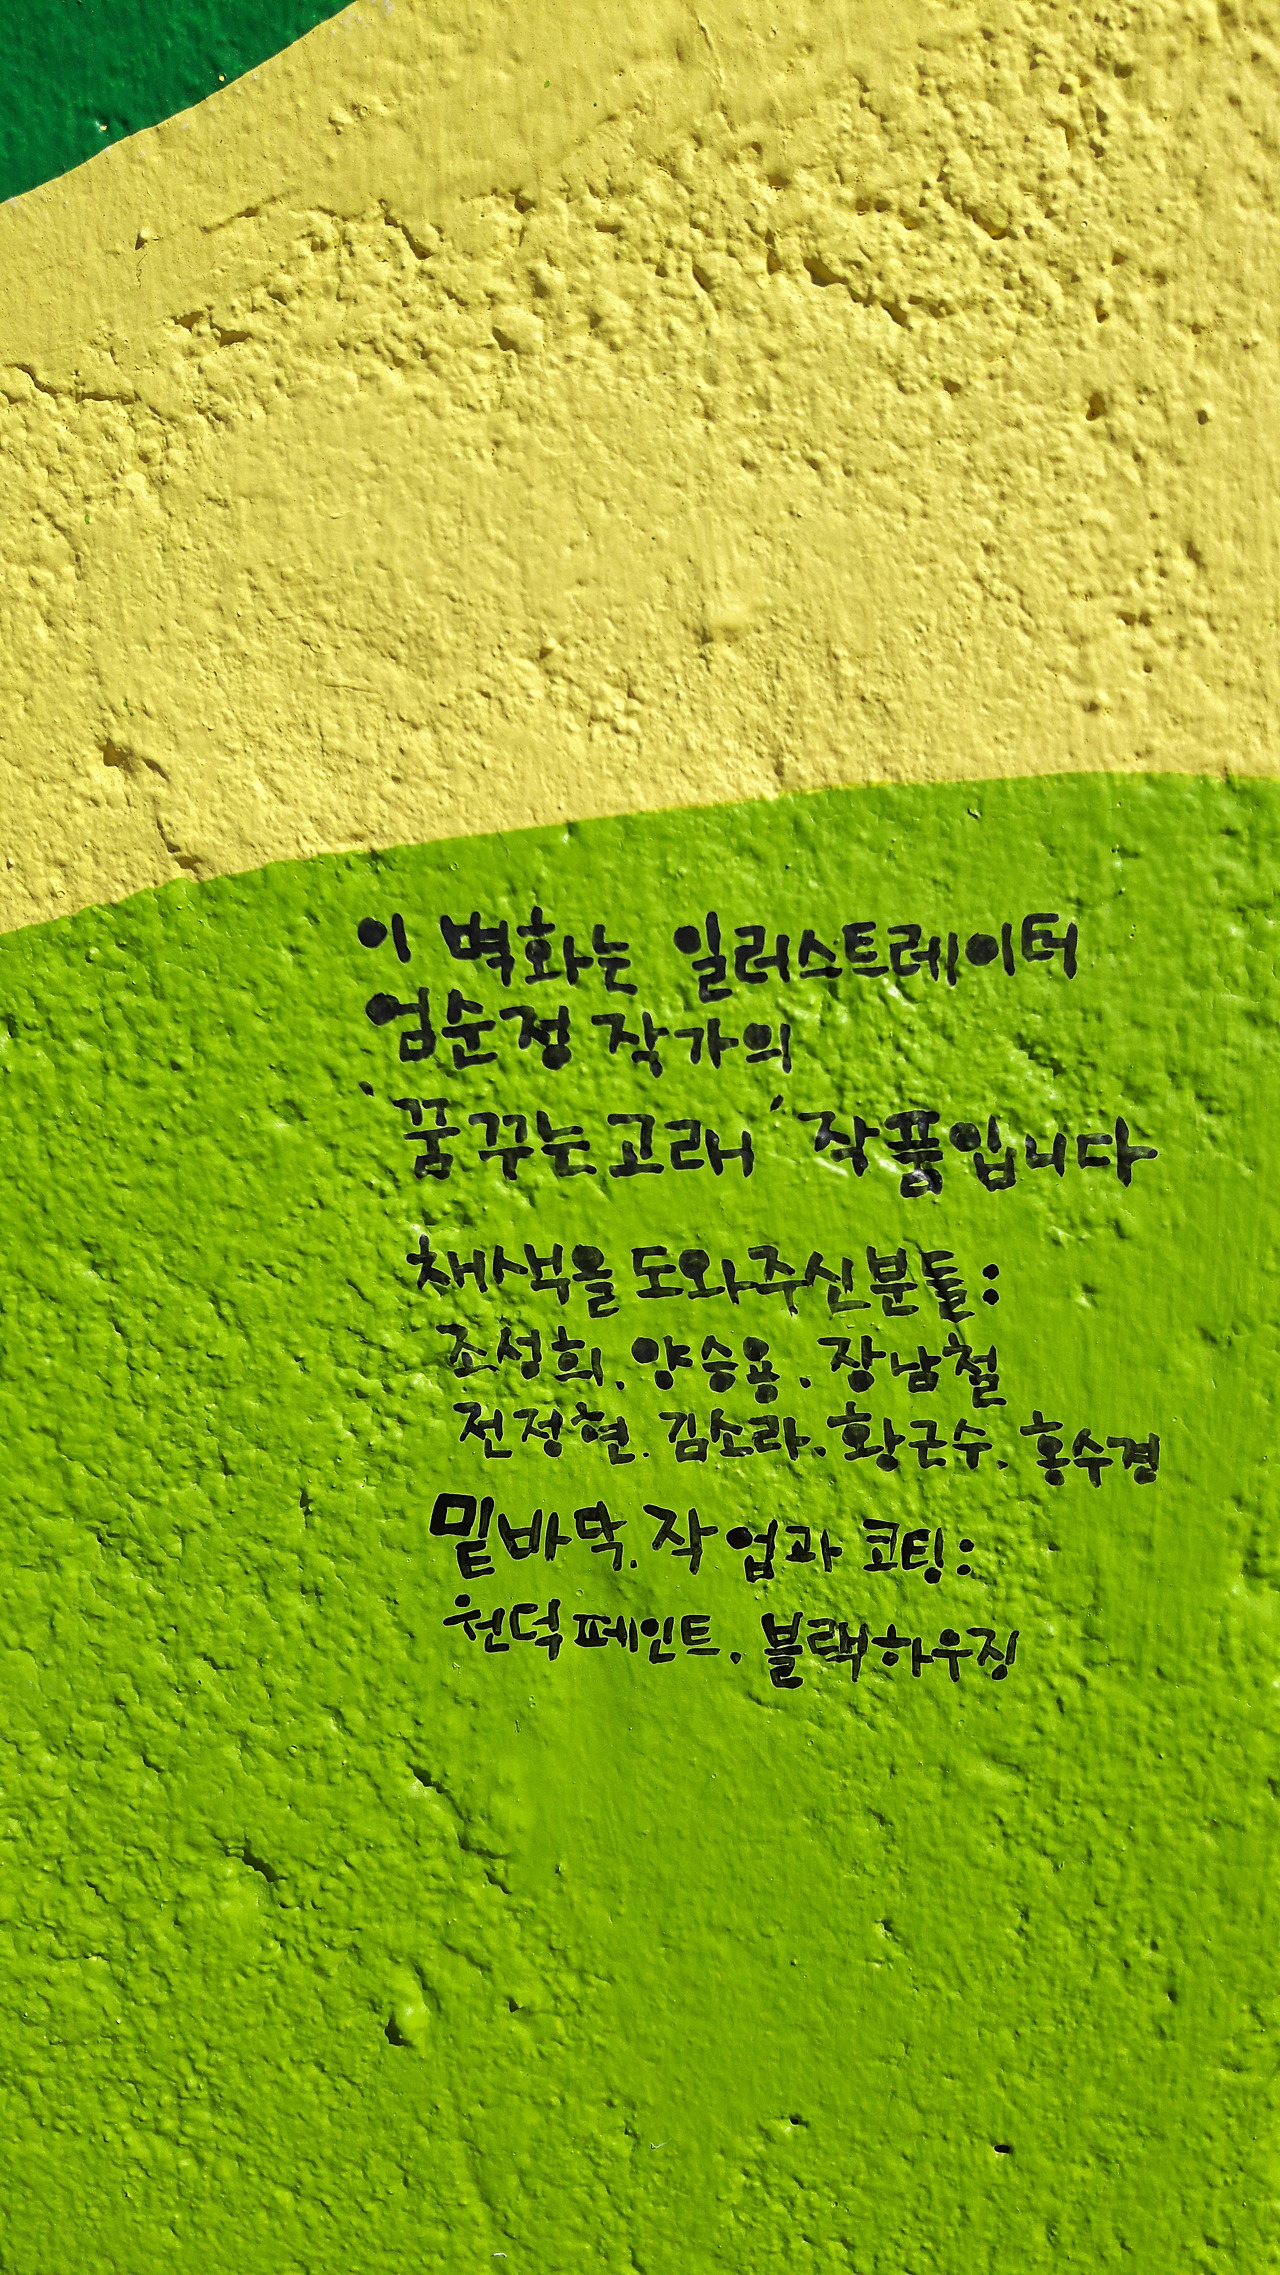 이 벽화는 일러스트레이터
엄순정 작가의
'꿈꾸는고래' 작품입니다
채색을 도와주신분들:
조성희. 양승용. 장남철
전정현. 김소라. 황근수. 홍수경
밑바닥. 작업과 코팅:
원덕페인트. 블랙하우징